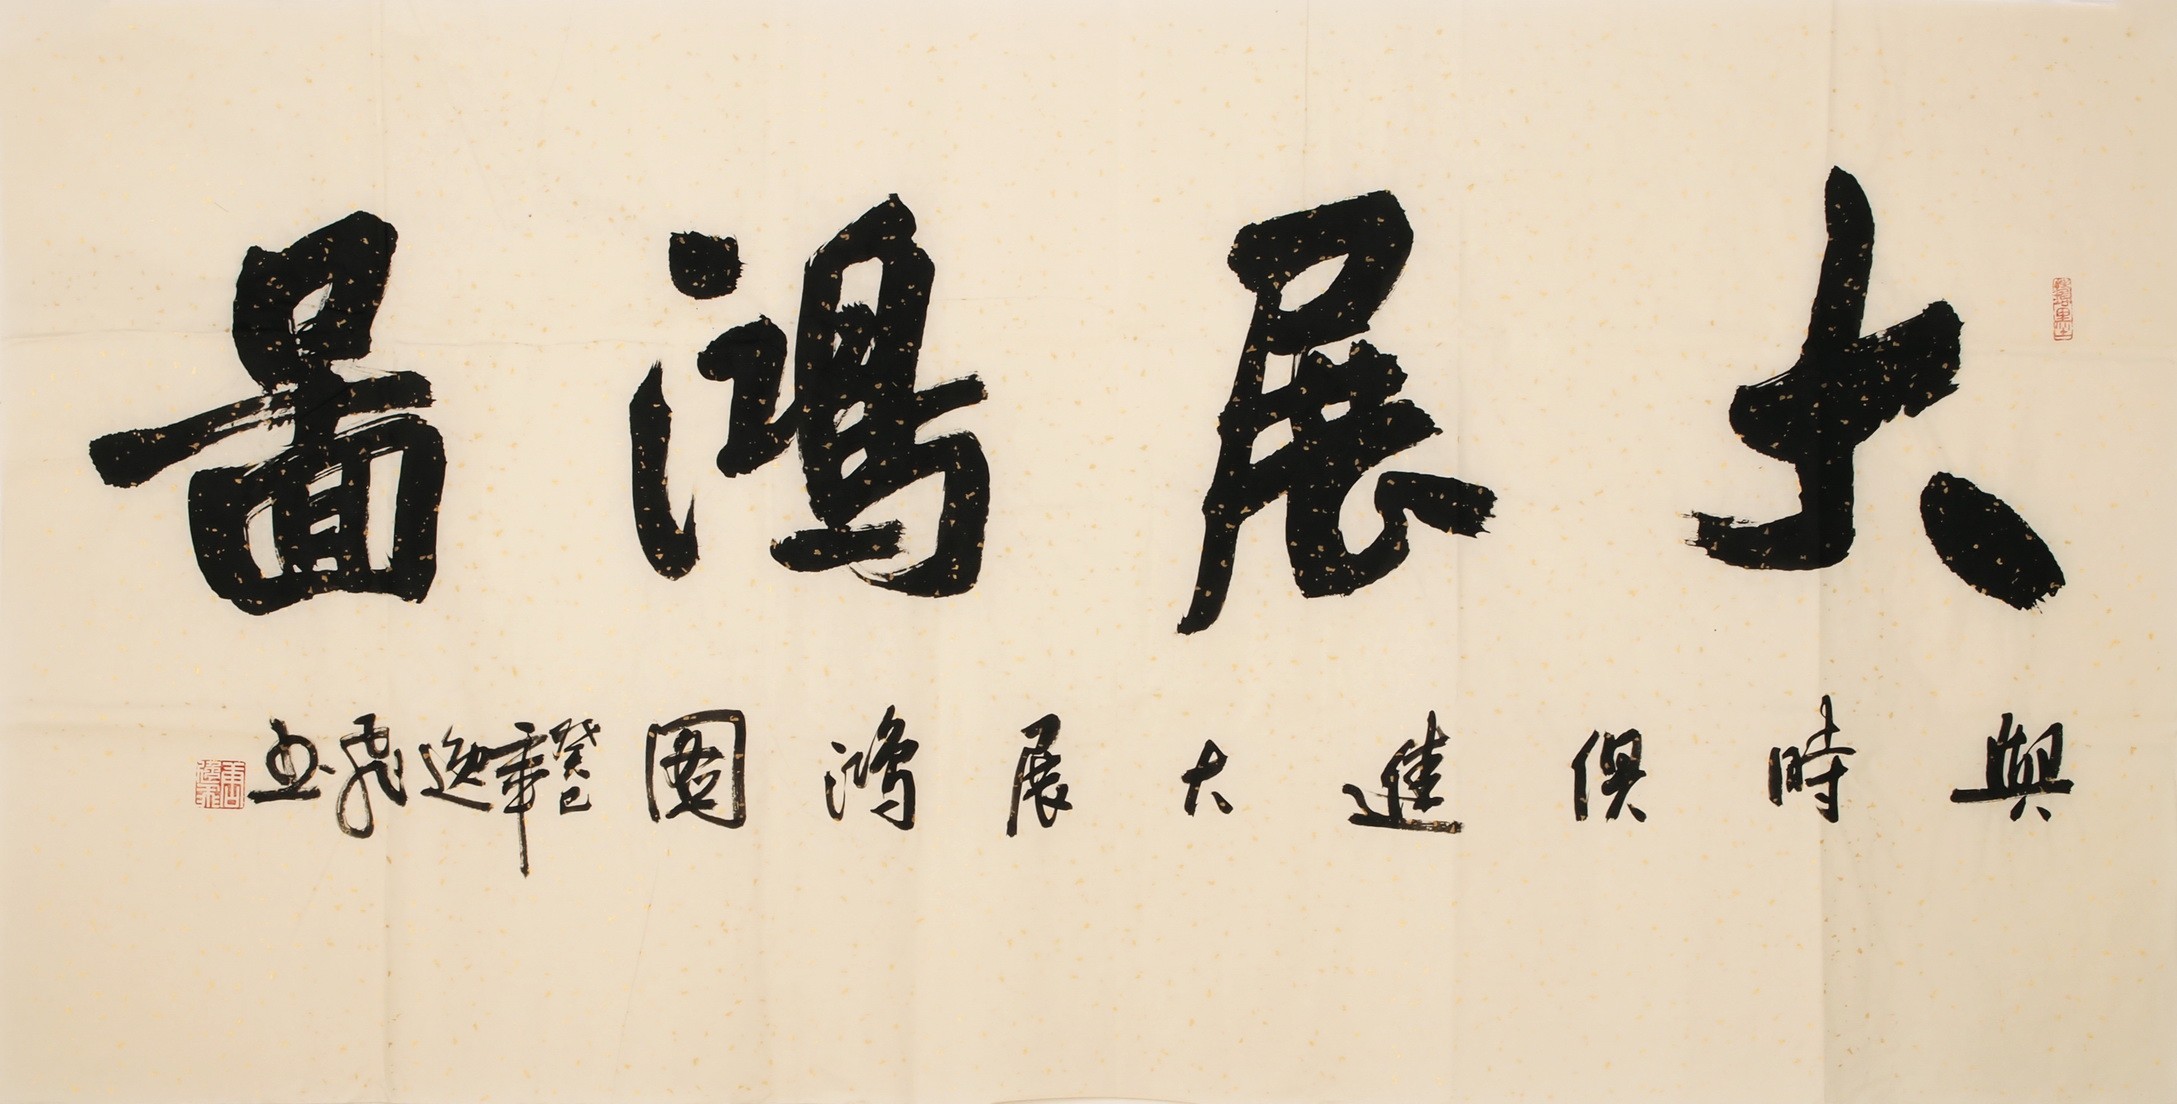 大展鴻圖
與時俱進大展鴻圖癸巳年逸飛書